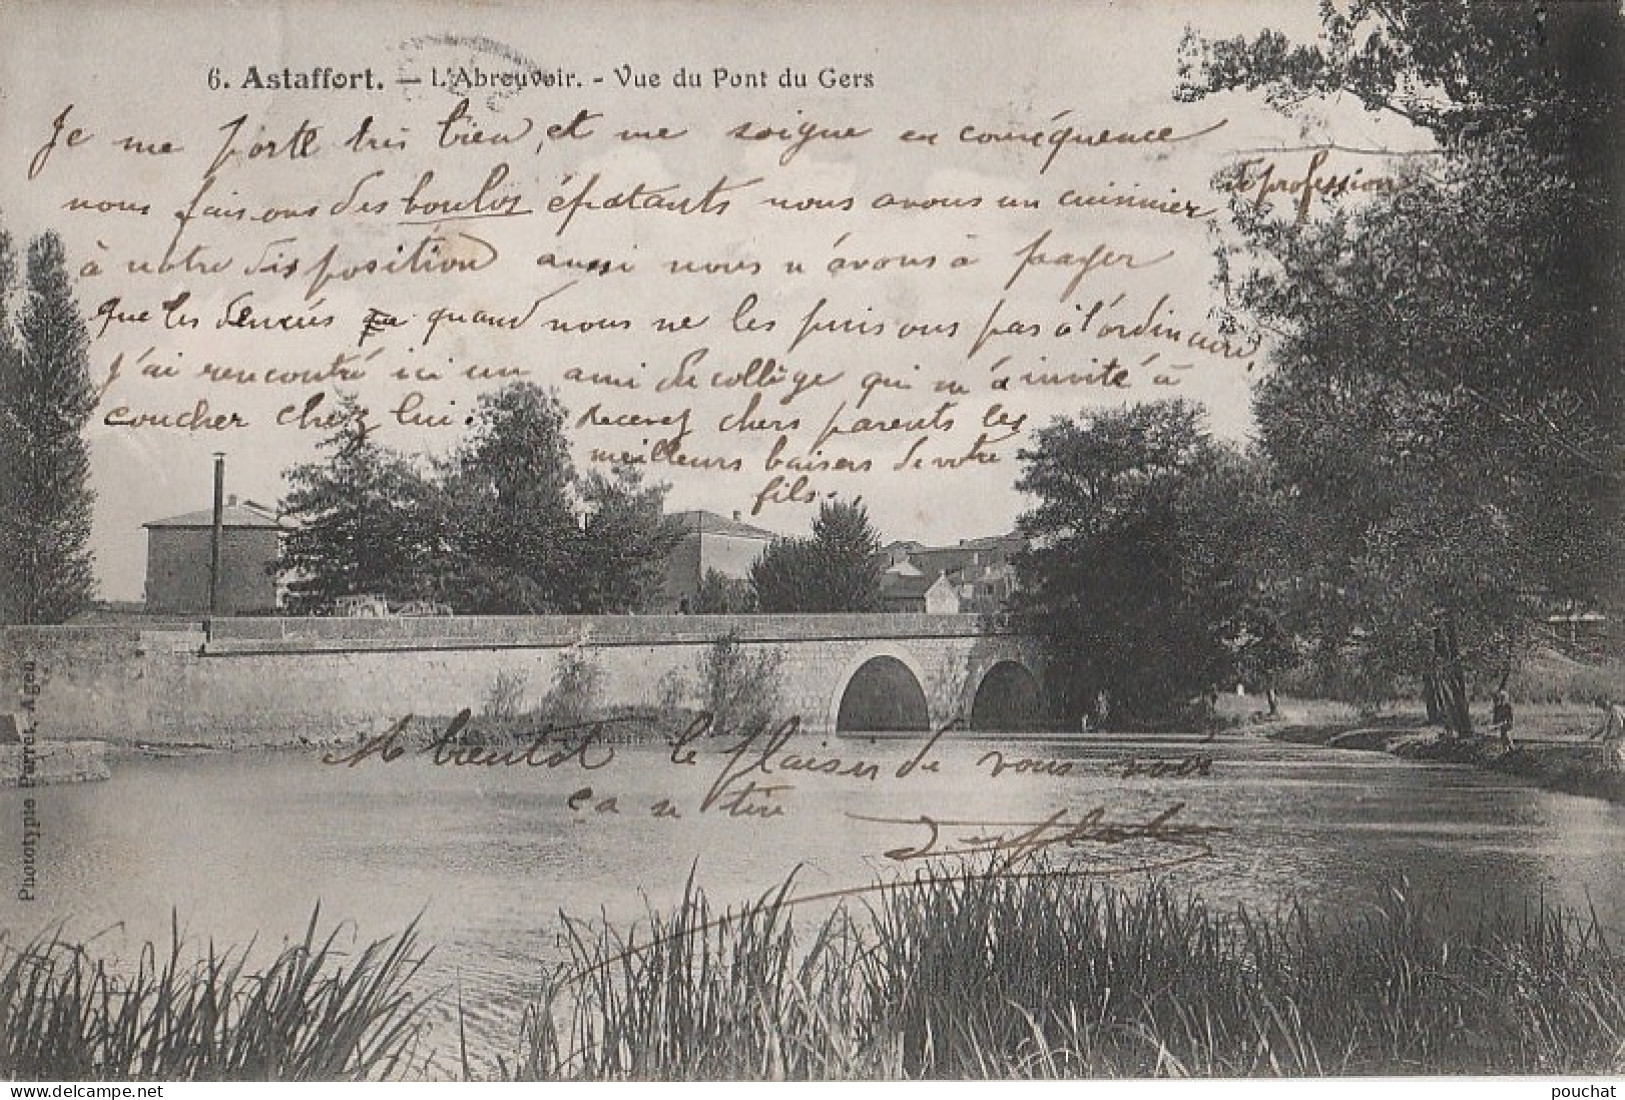 6. Astaffort. — L'Abreuvoir. - Vue du Pont du Gers
Je me porte très bien, et me soigne en conséquence
nous faisons des boulos épatants nous avons un cuisinier de profession
à notre disposition aussi nous n'avons à payer
que les denrées quand nous ne les puisons pas à l'ordinaire,
J'ai rencontré ici un ami du collège qui m'a invité à
coucher chez lui. Recevez chers parents les
meilleurs baisers de votre
fils.
A bientôt le plaisir de vous voir
ça se tire
Phototypie Parrot, Agen
delcampe.net
pouchat